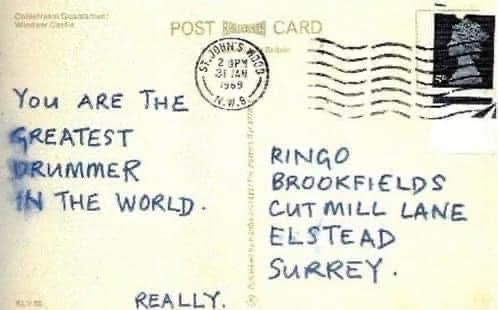 Windsor Castle
POST CARD
ST. JOHN'S WOOD
31 JAN
1969
N.W.8.
YOU ARE THE
GREATEST
DRUMMER
IN THE WORLD.
REALLY.
RINGO
BROOKFIELDS
CUT MILL LANE
ELSTEAD
SURREY.